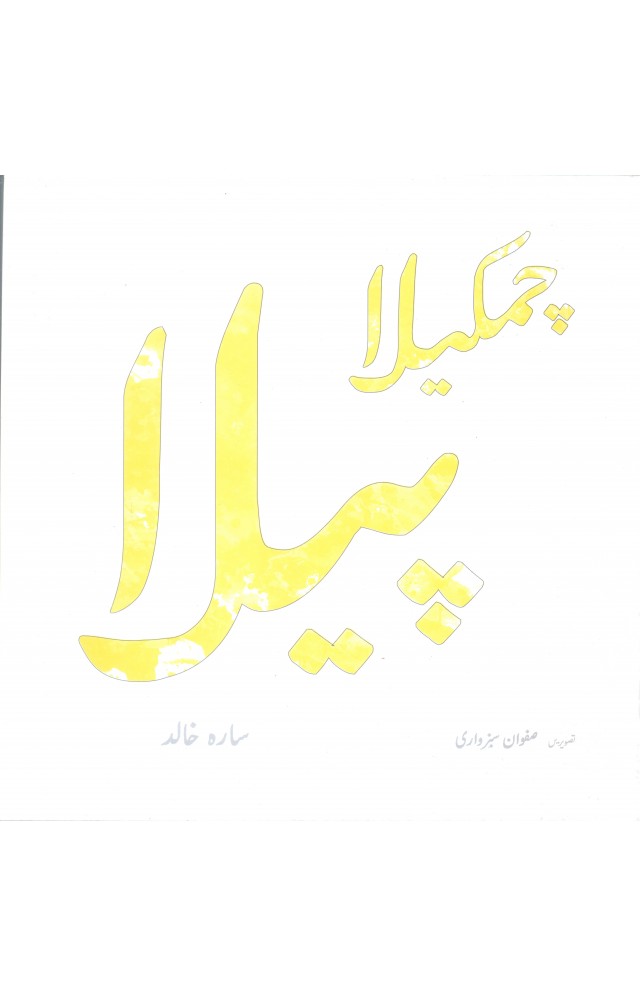 چمکیلا
پیلا
تصویریں صفوان سبزواری
سارہ خالد